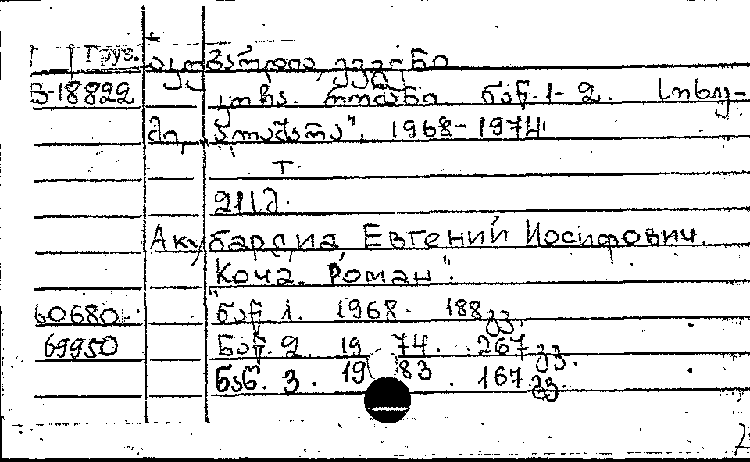 Груз. აკუბარდია, ევგენი
В-18822 კოჩა. რომანი. ნაწ. 1-2. სოხუ-
მი, „ალაშარა". 1968-1974.
Т.
211დ.
Акубардиа, Евгений Иосифович.
Коча. Роман".
60680 ნაწ. 1. 1968. 188გვ.
69950 ნაწ. 2. 1974. 267გვ.
ნაწ. 3. 1983. 167გვ.